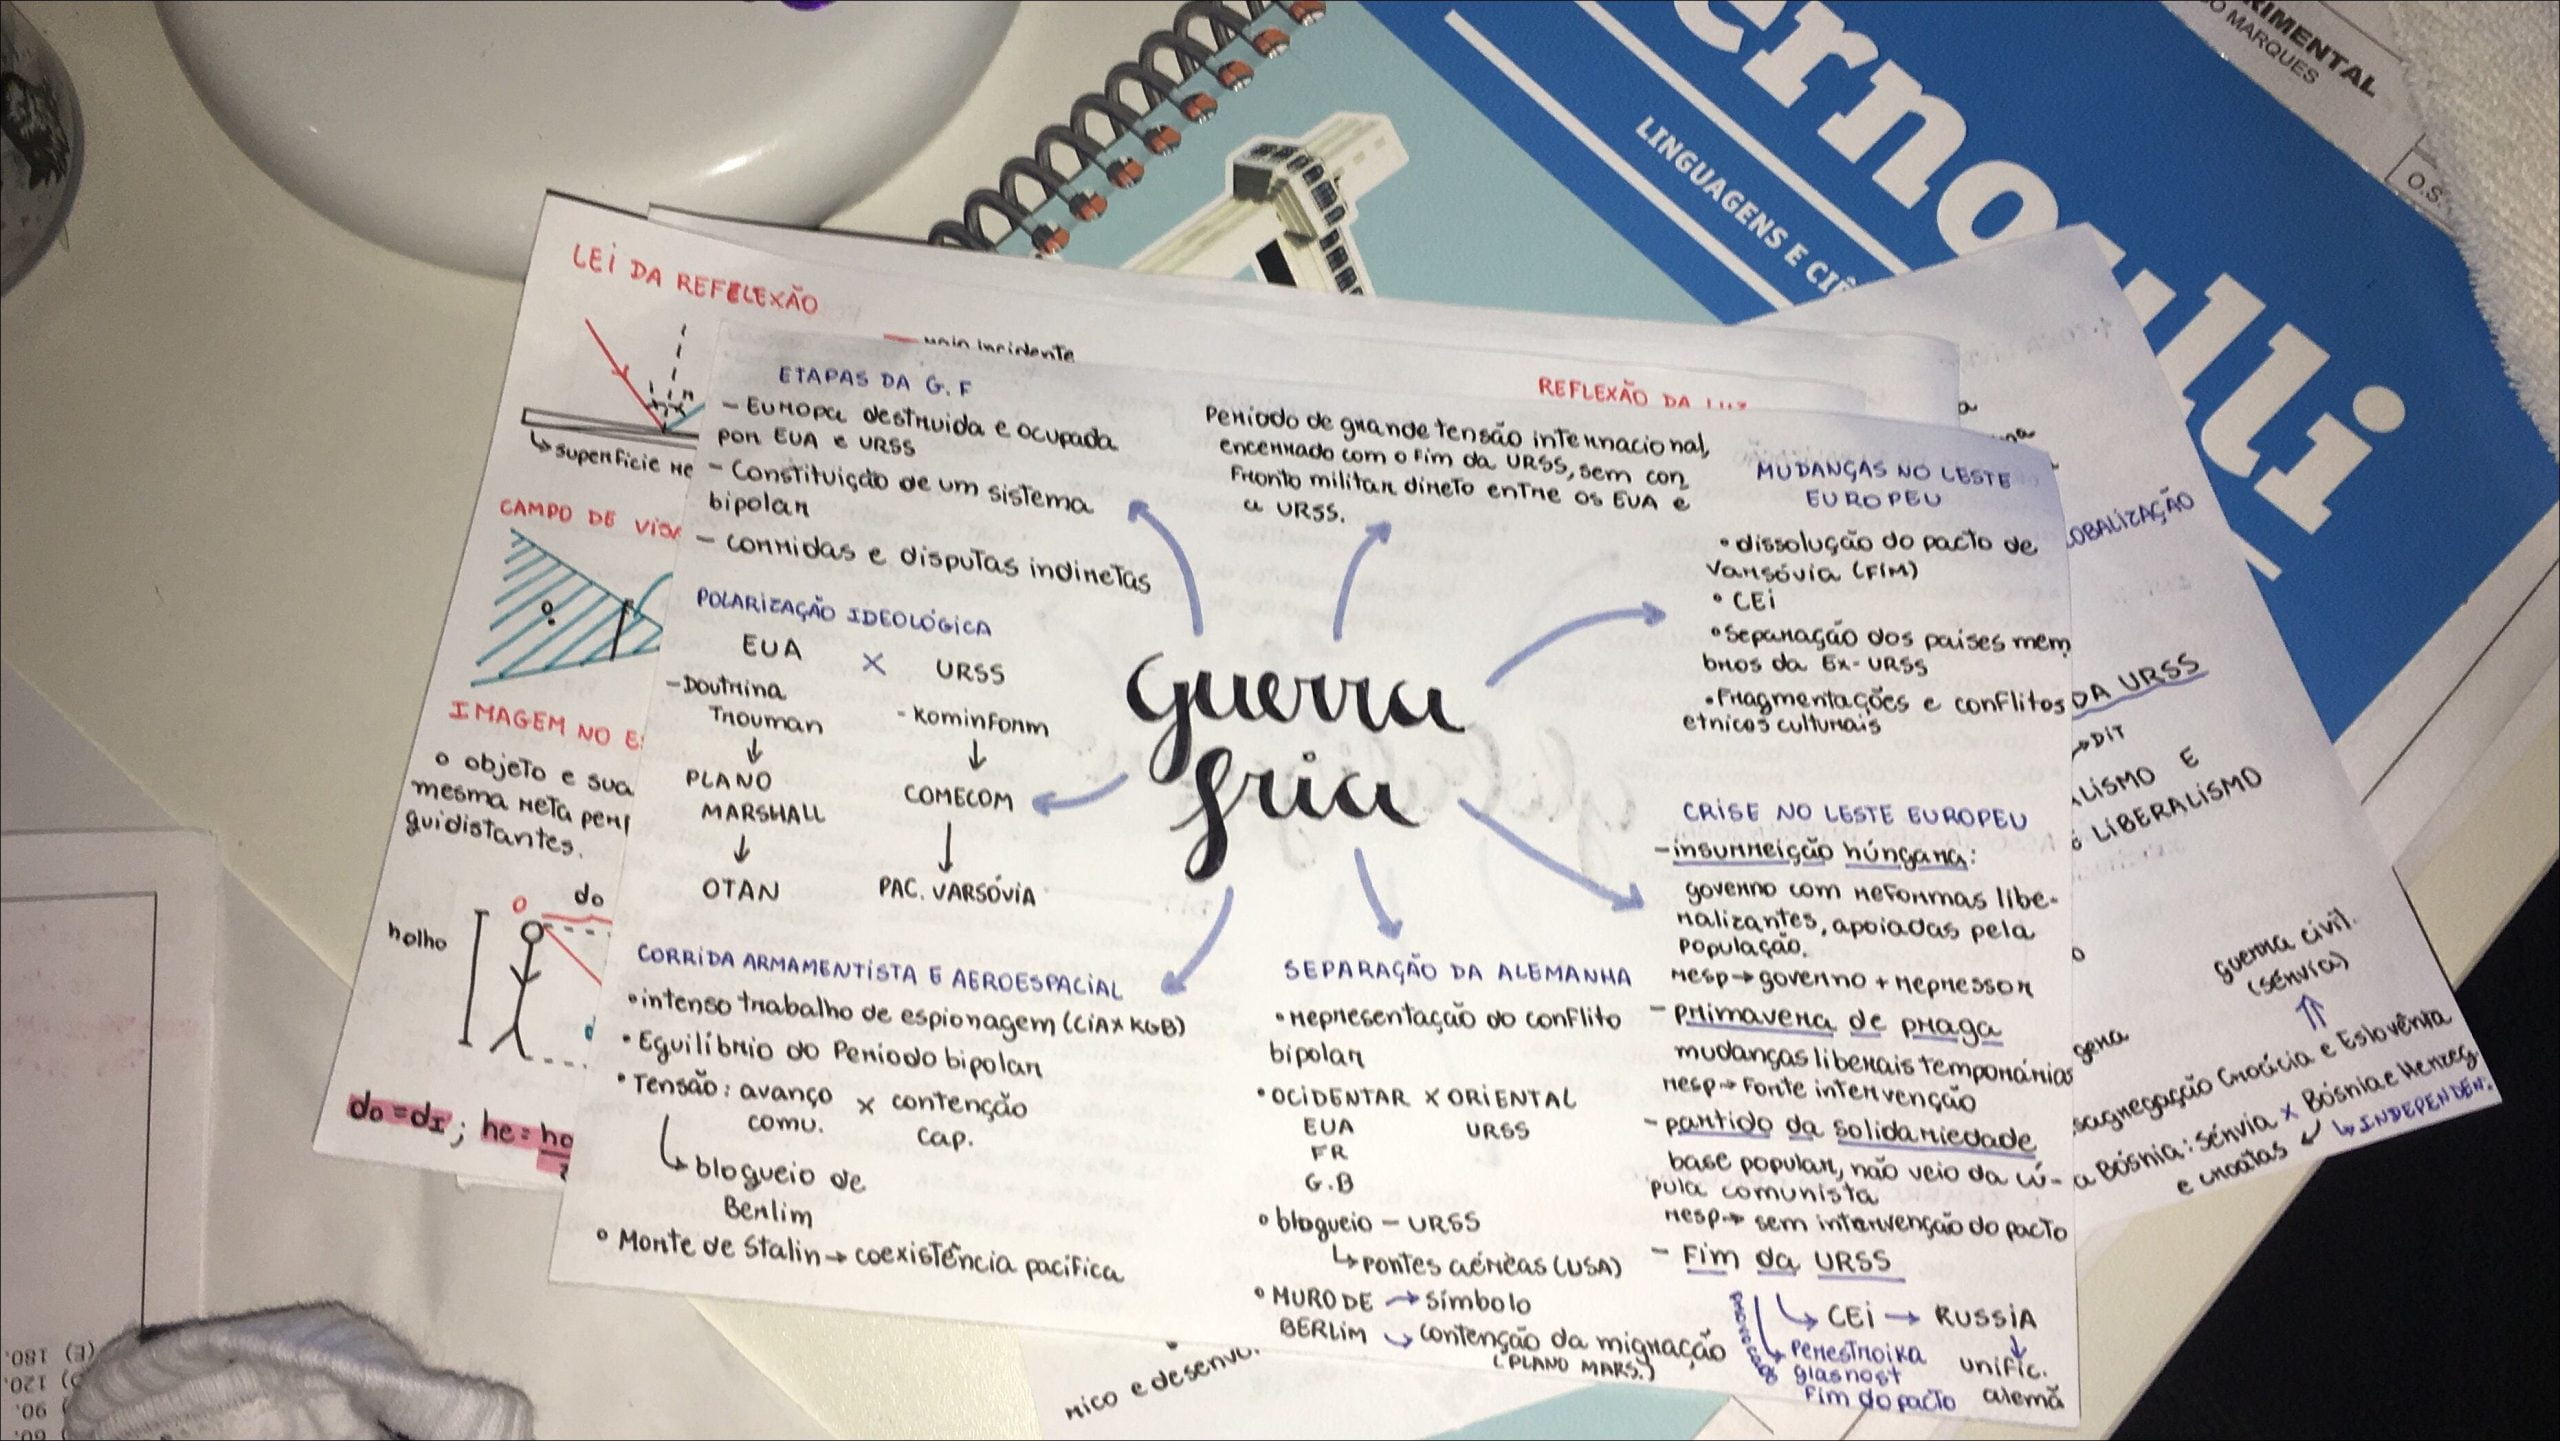 ernoulli
LINGUAGENS E CIÊ
RIMENTAL
O MARQUES
O.S.
LEI DA REFELEXÃO
incidente
superfície
CAMPO DE
IMAGEM NO
o objeto e sua
mesma reta
guidistantes.
O
do
holho
do = di; he = ho
REFLEXÃO DA
ETAPAS DA G.F
- Europa destruida e ocupada
por EUA e URSS
- Constituição de um sistema
bipolar
- corridas e disputas indiretas
Período de grande tensão internacional,
encerrado com o fim da URSS, sem con
fronto militar direto entre os EUA e
a URSS.
POLARIZAÇÃO IDEOLÓGICA
EUA X URSS
- Doutrina
Trouman
- Kominform
↓ ↓
PLANO
MARSHALL
COMECOM
↓ ↓
OTAN PAC. VARSÓVIA
guerra
fria
CORRIDA ARMAMENTISTA E AEROESPACIAL
• intenso trabalho de espionagem (CIA X KGB)
• Eguilíbrio do Período bipolar
• Tensão: avanço x contenção
comu. cap.
↳ blogueio de
Berlim
• Morte de Stalin → coexistência pacífica
SEPARAÇÃO DA ALEMANHA
• representação do conflito
bipolar
• OCIDENTAR X ORIENTAL
EUA URSS
FR
G.B
• blogueio - URSS
↳ pontes aéreas (USA)
• MURO DE → símbolo
BERLIM ↪ contenção da migração
(PLANO MARS.)
MUDANÇAS NO LESTE
EUROPEU
• dissolução do pacto de
Varsóvia (FIM)
• CEI
• Separação dos países mem
bros da Ex-URSS
• Fragmentações e conflitos
etnicos culturais
CRISE NO LESTE EUROPEU
- insurreição húngara:
governo com reformas libe-
ralizantes, apoiadas pela
população.
resp → governo + repressor
- primavera de praga
mudanças liberais temporárias
resp → forte intervenção
- partido da solidariedade
base popular, não veio da cú-
pula comunista
resp → sem intervenção do pacto
- Fim da URSS
↳ CEI → RUSSIA
↓
unific.
alemã
↳ Perestroika
glasnost
Fim do pacto
OBALIZAÇÃO
DA URSS
→ DIT
LISMO E
LIBERALISMO
guerra civil.
(sérvia)
⇑
sagregação Croácia e Eslovênia
a Bósnia: sérvia x Bósnia e Herzeg.
e croatas ↙ ↳ INDEPENDEN.
mico e desenvo
(E) 180.
120.
90.
60.